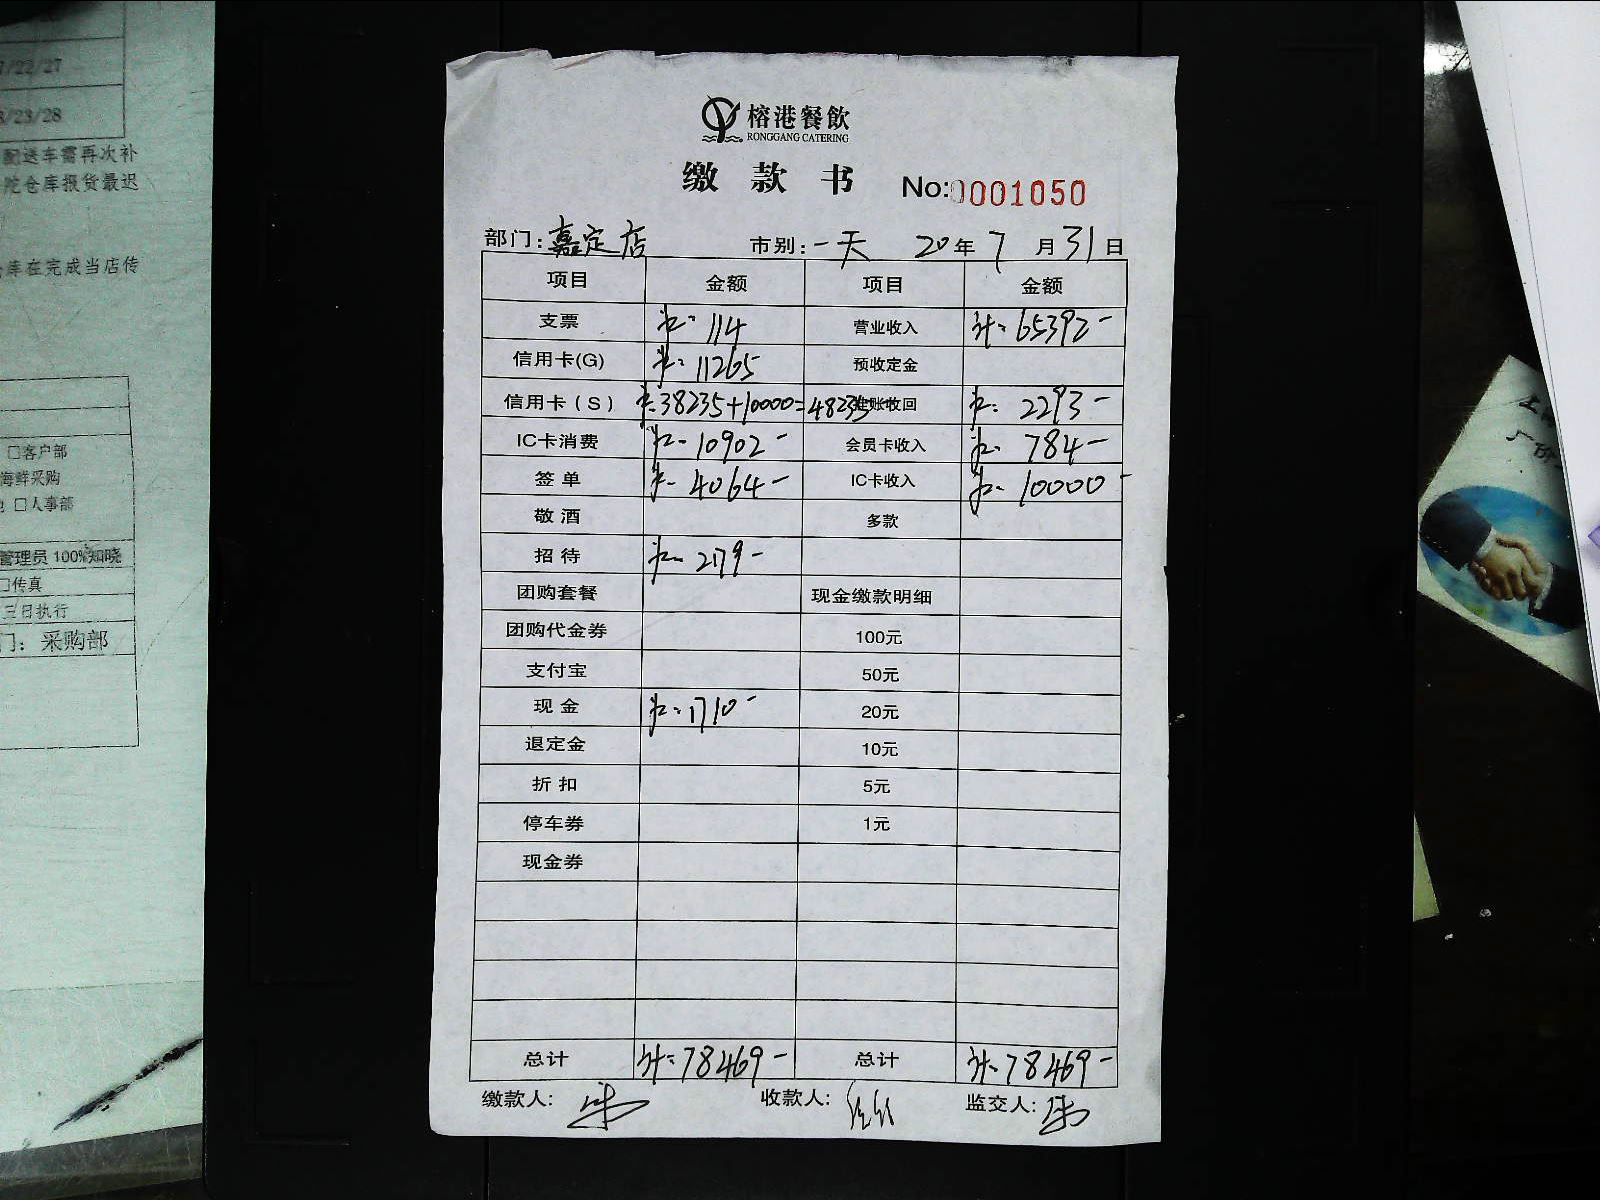 7/22/27
8/23/28
配送车需再次补
院仓库报货最迟
仓库在完成当店传
□客户部
海鲜采购
□人事部
管理员 100%知晓
□传真
三日执行
门：采购部
榕港餐飲
RONGGANG CATERING
缴款书 No:0001050
部门：嘉定店 市别：一天 20年7月31日
项目 金额 项目 金额
支票 114 营业收入 计：65392-
信用卡(G) 11265 预收定金
信用卡（S） 38235+10000=48235 账收回 2293-
IC卡消费 10902- 会员卡收入 784-
签单 4064- IC卡收入 10000-
敬酒 多款
招待 2179-
团购套餐 现金缴款明细
团购代金券 100元
支付宝 50元
现金 1710- 20元
退定金 10元
折扣 5元
停车券 1元
现金券
总计 计：78469- 总计 计：78469-
缴款人： 收款人： 监交人：